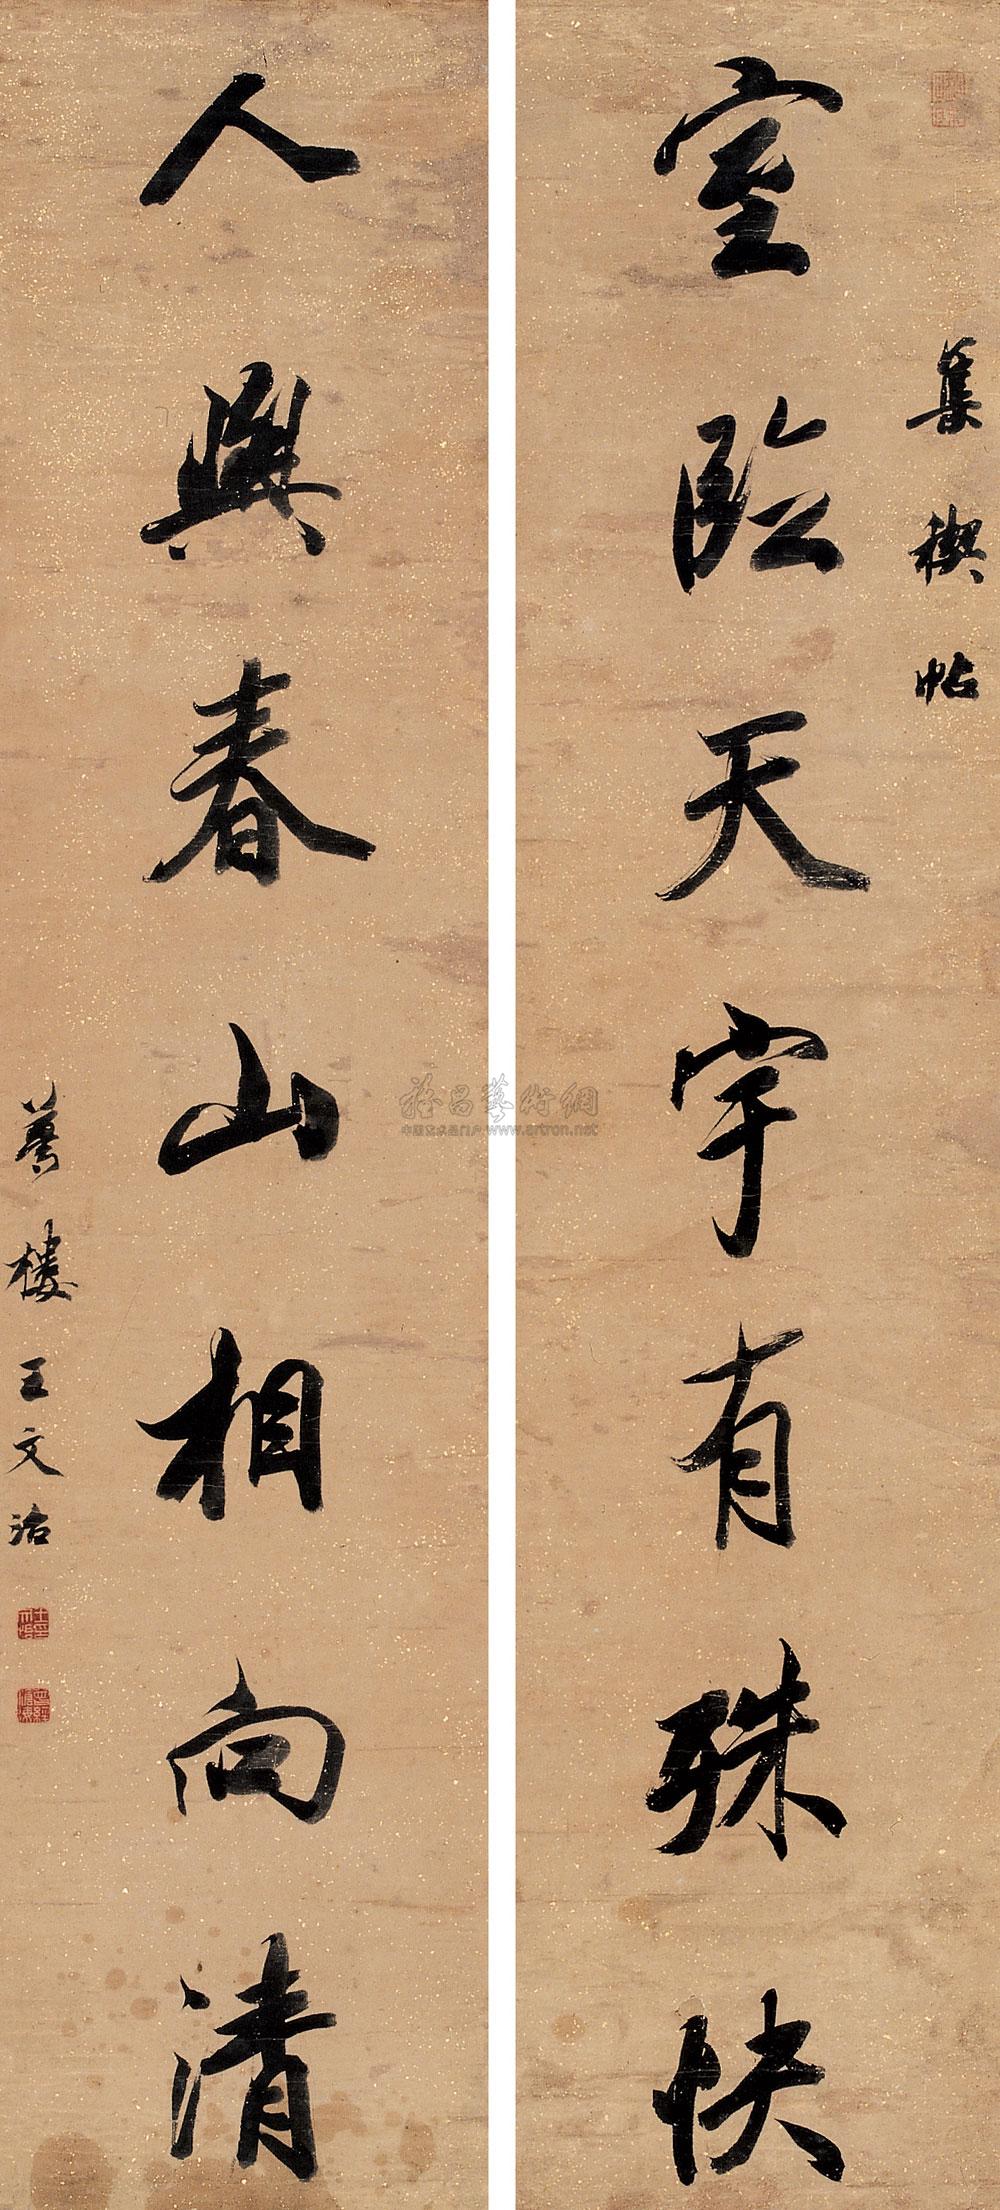 集禊帖
室臨天宇有殊快
人與春山相向清
夢樓王文治
雅昌藝術網
中国艺术品门户 www.artron.net